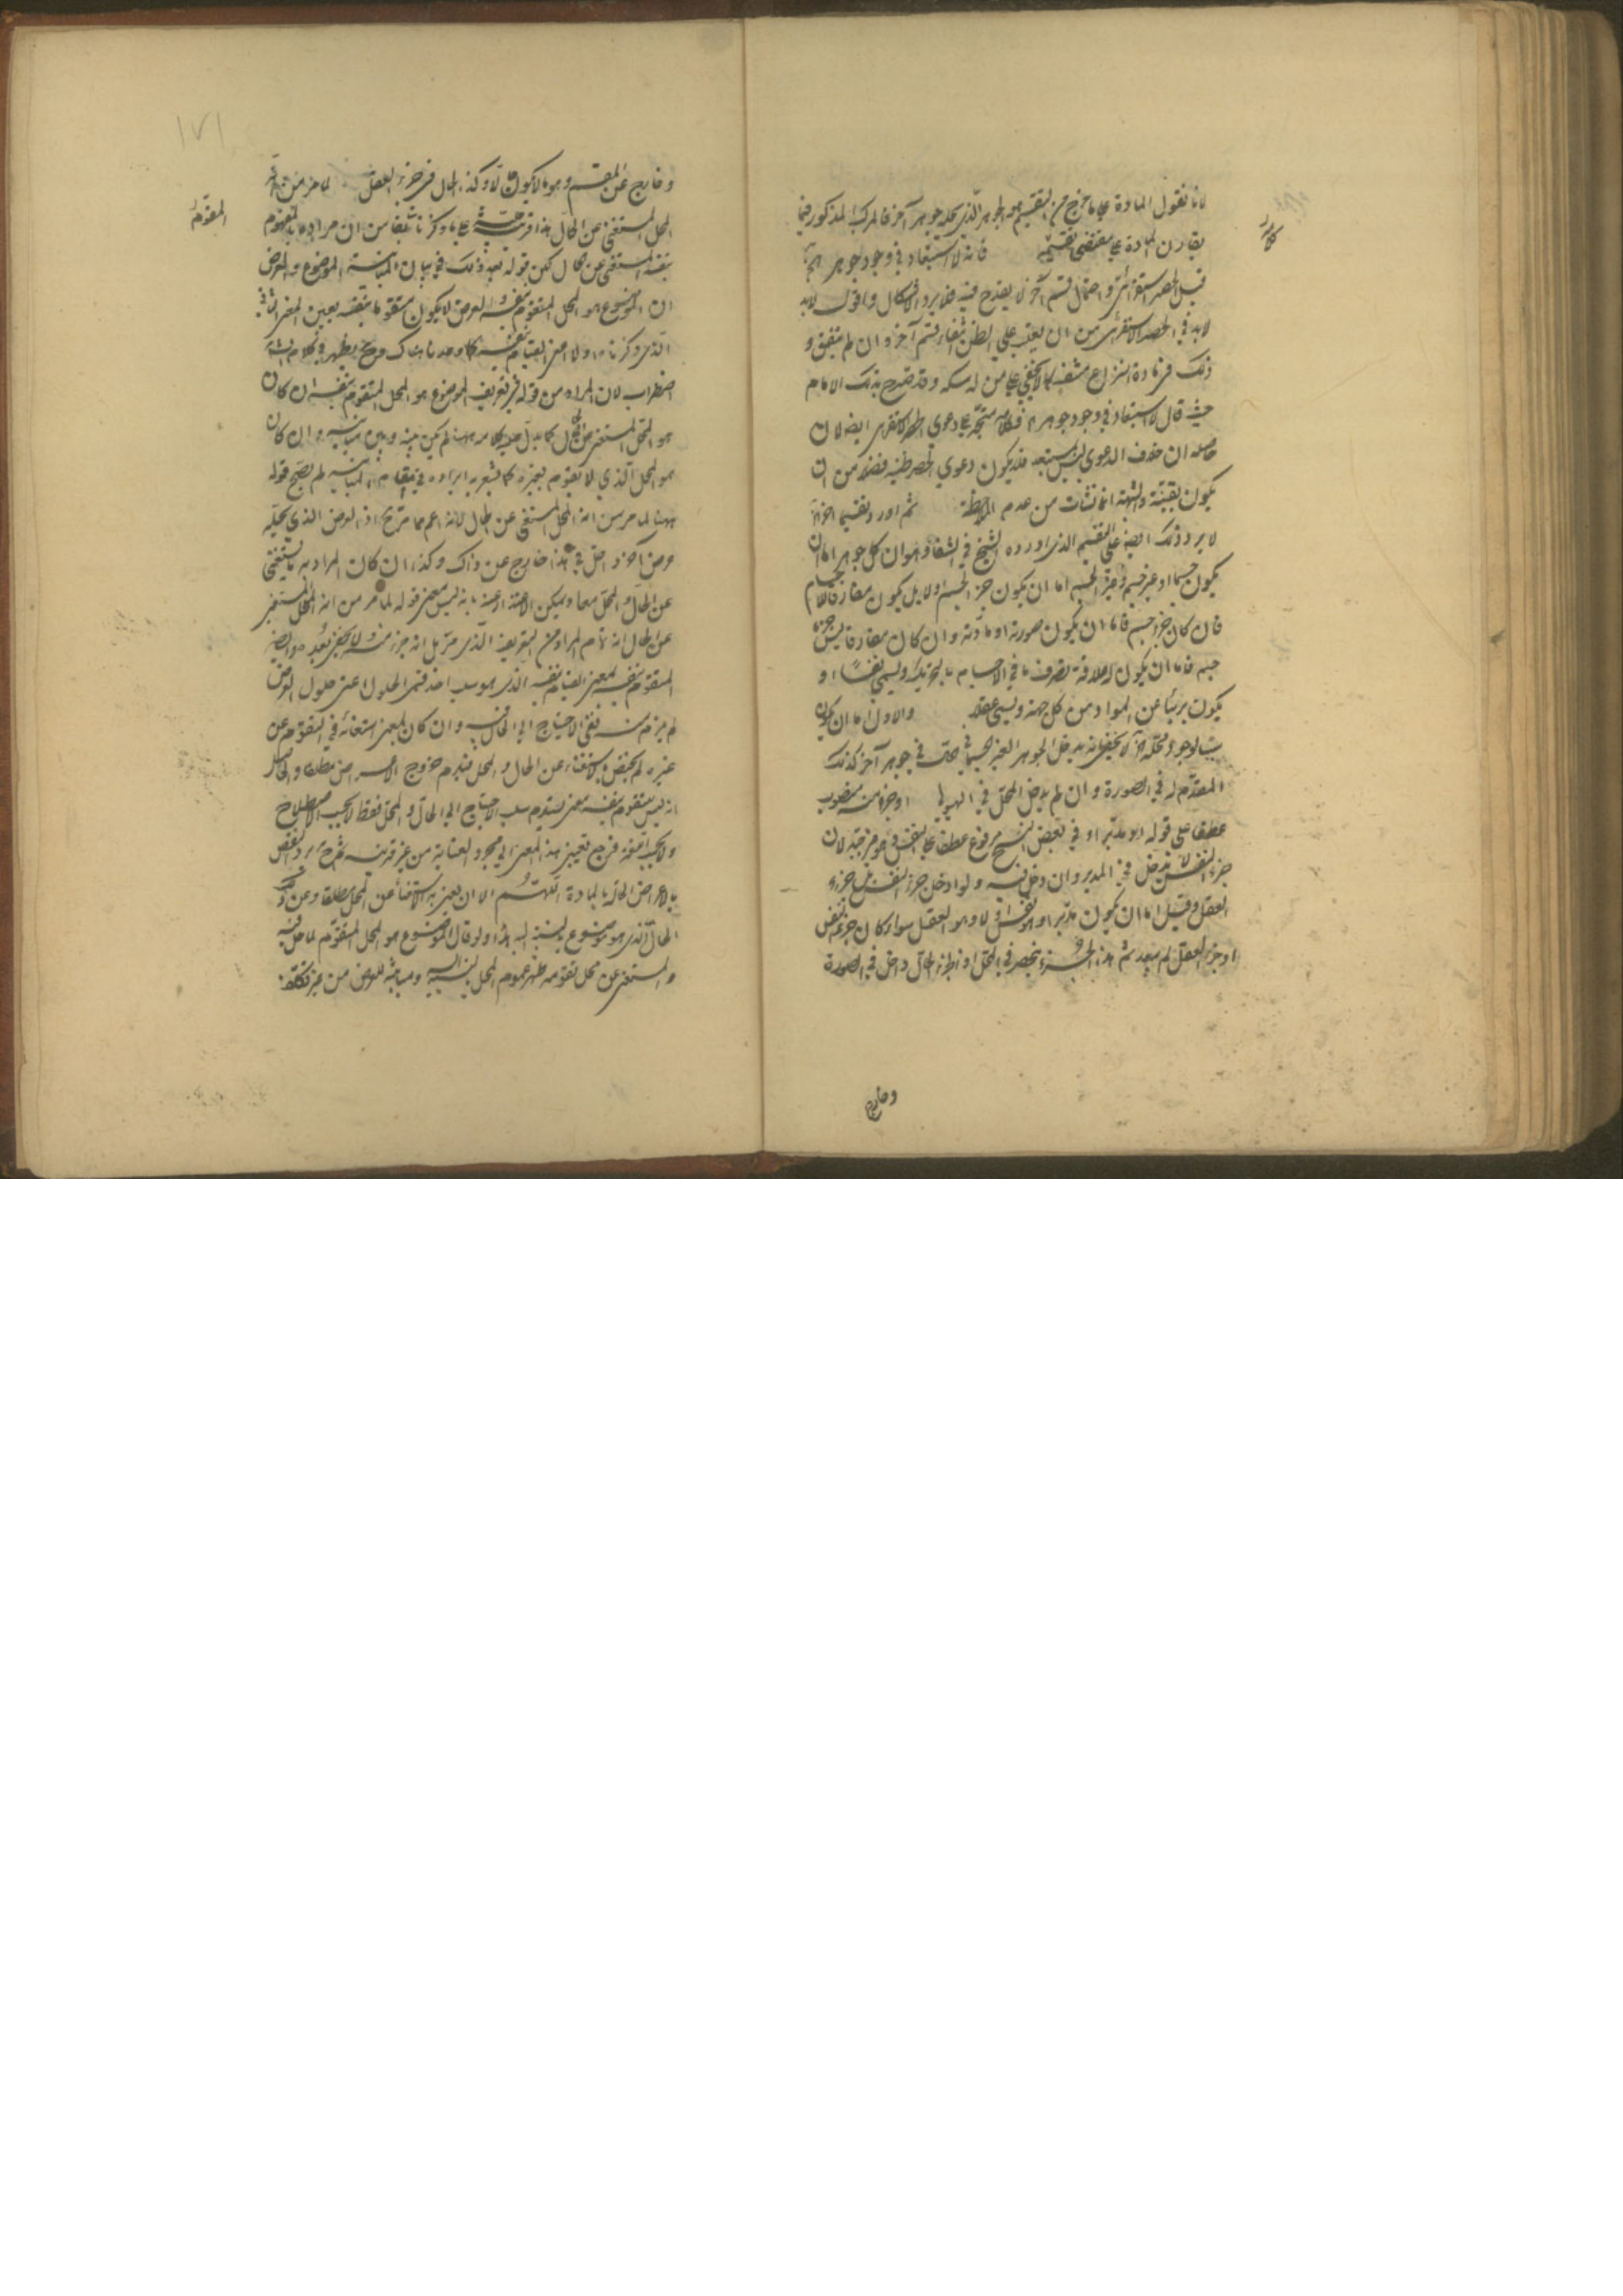 لانا نقول المادة على ما خرج من التقسيم هو الجوهر الذي يحله جوهر آخر فالمركب المذكور فيما
يقارن المادة على مقتضى تقسيمه فانه لا استبعاد في وجود جوهر
قيل الحصر استقرائي واحتمال قسم آخر لا يقدح فيه فلا يرد الاشكال واقول لابد
لابد في الحصر الاستقرائي من ان يغلب على الظن انتفاء قسم آخر وان لم يتفق و
ذلك في مادة النزاع منتف كما لا يخفى على من له مسكة وقد صرح بذلك الامام
حيث قال لا استبعاد في وجود جوهر فكلامه متجه على دعوى الحصر الاستقرائي ايضا لان
حاصله ان خلاف الدعوى ليس بمستبعد فلا يكون دعوى الحصر ظنية فضلا من ان
يكون يقينية والشبهة انما نشأت من عدم الملاحظة ثم اورد تقسيما آخر
لا يرد ذلك ايضا على التقسيم الذي اورده الشيخ في الشفا وهو ان كل جوهر اما ان
يكون جسما او غير جسم وغير الجسم اما ان يكون جزء الجسم او لا بل يكون مفارقا للاجسام
فان كان جزء جسم فاما ان يكون صورته او مادته وان كان مفارقا ليس جزء
جسم فاما ان يكون له علاقة تصرف ما في الاجسام بالتحريك ويسمى نفسا او
يكون بريئا عن المواد من كل جهة ويسمى عقلا والاول اما ان يكون
لا يخفى انه يدخل الجوهر الغير الجسماني في جوهر آخر كذلك
المقدم له في الصورة وان لم يدخل المحل في الهيولى او جزء منه منصوب
عطف على قوله او مدبرا وفي بعض النسخ مرفوع عطف على النفس لان
جزء النفس لا يدخل في المدبر وان دخل فيه ولو ادخل جزء النفس بل جزء
العقل وقيل اما ان يكون مدبرا او هو النفس او لا وهو العقل سواء كان جزء نفس
او جزء العقل لم يبعد ثم هذا الجزء ينحصر في المحل اذ الجزء الحال داخل في الصورة
وخارج
وخارج عن المقسم وهو ما لا يكون حالا وكذا الحال في جزء العقل لما مر من انه
المحل المستغني عن الحال هذا قرينة على ما ذكرنا سابقا من ان مراده بالمتقوم
المتقوم
بنفسه المستغني عن الحال لكن قوله بعد ذلك في بيان المباينة الموضوع والعرض
ان الموضوع هو المحل المتقوم بنفسه والعرض لا يكون متقوما بنفسه يعين المعنى الثاني
الذي ذكرناه اولا اعني القيام بنفسه كما وعدناك هناك وح يظهر في كلام الشارح
اضطراب لان المراد من قوله في تعريف الموضوع هو المحل المتقوم بنفسه ان كان
هو المحل المستغني عن الحال كما يدل عليه كلامه ههنا لم يكن بينه وبين مباينة وان كان
هو المحل الذي لا يتقوم بغيره كما يشعر به ايراده في مقام المباينة لم يصح قوله
ههنا لما مر من انه المحل المستغني عن الحال لانه اعم مما مر ح اذ العرض الذي يحله
عرض آخر داخل في هذا خارج عن ذاك وكذا ان كان المراد به ما يستغني
عن الحال والمحل معا ويمكن الاعتذار عنه بانه ليس معنى قوله لما مر من انه المحل المستغني
عن الحال انه تمام المراد من التعريف الذي مر بل انه جزء منه ولا يخفى بعده وايضا
المتقوم بنفسه بمعنى القيام بنفسه الذي هو سلب احد قسمي الحلول اعني حلول العرض
لم يلزم منه نفي الاحتياج الى الحال فيه وان كان بمعنى استغنائه في التقوم عن
غيره لم يختص بالاستغناء عن الحال والمحل فيلزم خروج الاعراض مطلقا والحاصل
انه ليس لمتقوم بنفسه معنى يستلزم سلب الاحتياج الى الحال والمحل فقط لا بحسب الاصطلاح
ولا بحسب اللغة فيرجع تعيين هذا المعنى الى مجرد العناية من غير قرينة ثم ح يرد النقض
بالاعراض الحالة بالمادة اللهم الا ان يعني به الاستغناء عن المحل مطلقا وعن ذلك
الحال الذي هو موضوع بالنسبة اليه هذا ولو قال الموضوع هو المحل المتقوم لما حل فيه
والمستغني عن محل تقومه ظهر عموم المحل بالنسبة اليه ومباينته للعرض من غير تكلف